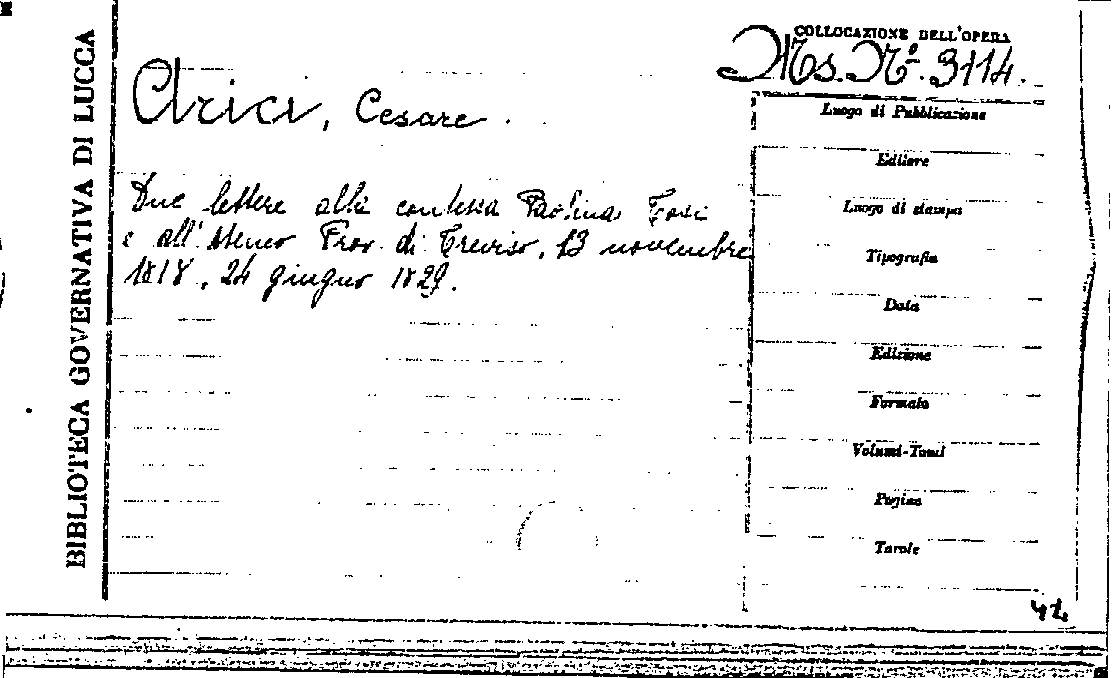 BIBLIOTECA GOVERNATIVA DI LUCCA
COLLOCAZIONE DELL'OPERA
Ms. Nº. 3114.
Arici, Cesare.
Due lettere alla contessa Paolina Tosi
e all'Ateneo Prov. di Treviso, 13 novembre
1818, 24 giugno 1829.
Luogo di Pubblicazione
Editore
Luogo di stampa
Tipografia
Data
Edizione
Formato
Volumi-Tomi
Pagine
Tavole